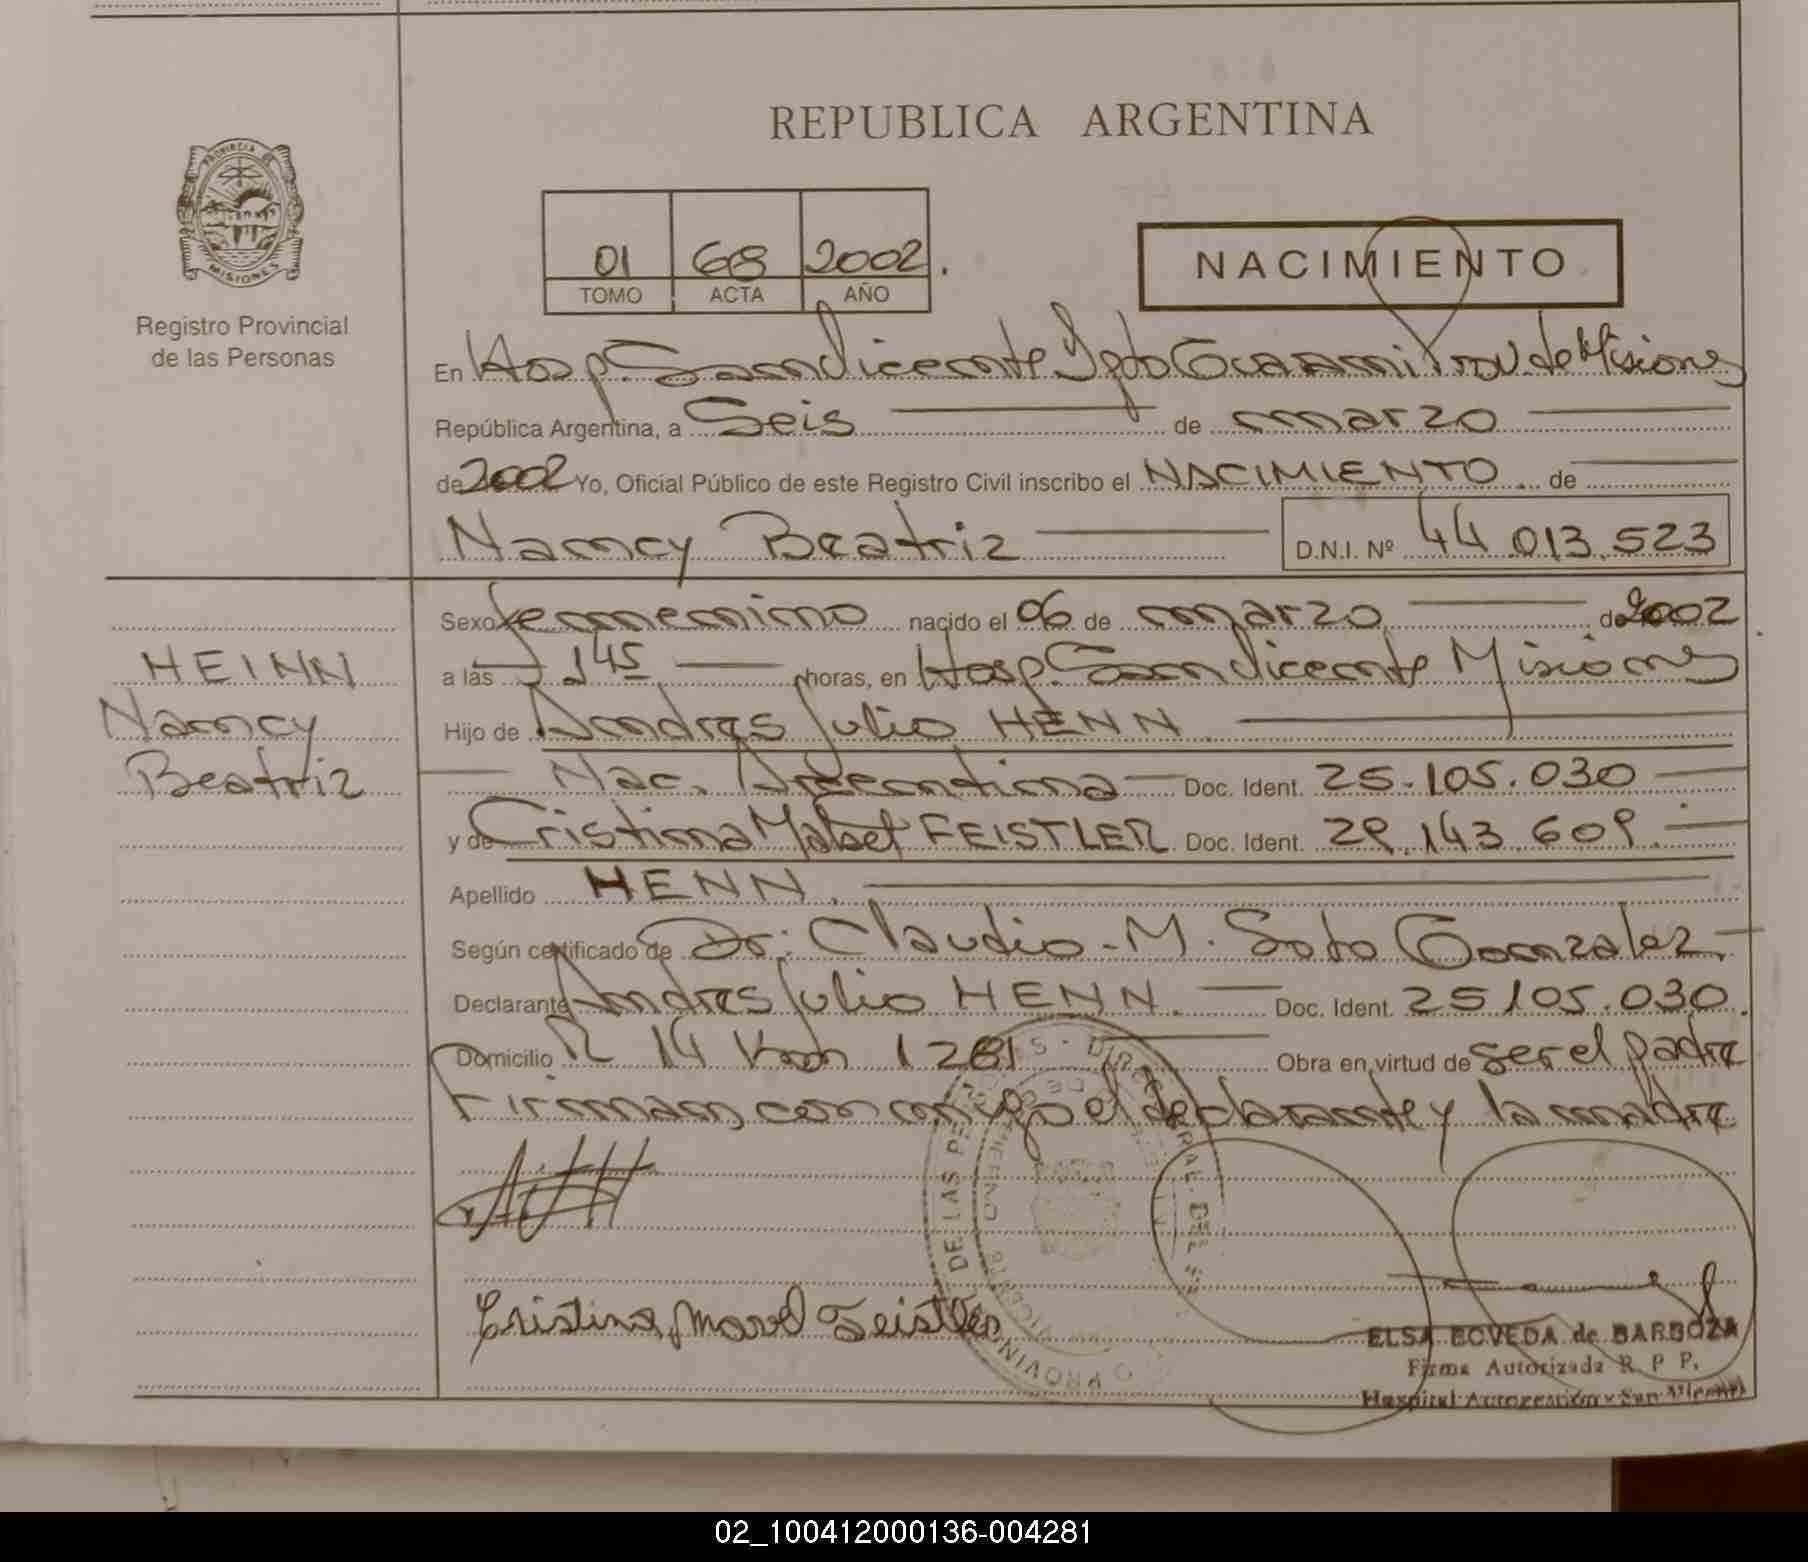 REPUBLICA ARGENTINA
PROVINCIA DE
MISIONES
Registro Provincial
de las Personas
01 68 2002.
TOMO ACTA AÑO
NACIMIENTO
En Hosp. San Vicente Dpto Guarani Prov. de Misiones
República Argentina, a Seis de marzo
de 2002 Yo, Oficial Público de este Registro Civil inscribo el NACIMIENTO de
Nancy Beatriz D.N.I. Nº 44.013.523
HEINN
Nancy
Beatriz
Sexo femenino nacido el 06 de marzo de 2002
a las 145 horas, en Hosp. San Vicente Misiones
Hijo de Andres Julio HENN
Nac. Argentina Doc. Ident. 25.105.030
y de Cristina Mabel FEISTLER Doc. Ident. 29.143.609.
Apellido HENN.
Según certificado de Dr. Claudio M. Soto Gonzalez
Declarante Andres Julio HENN. Doc. Ident. 25105.030.
Domicilio R 14 Km 1261 Obra en virtud de ser el padre
Firman con migo el declarante y la madre
Cristina Mavel Feistler
ELSA BOVEDA de BARBOZA
Firma Autorizada R. P. P.
Hospital Autogestión - San Vicente
02_100412000136-004281